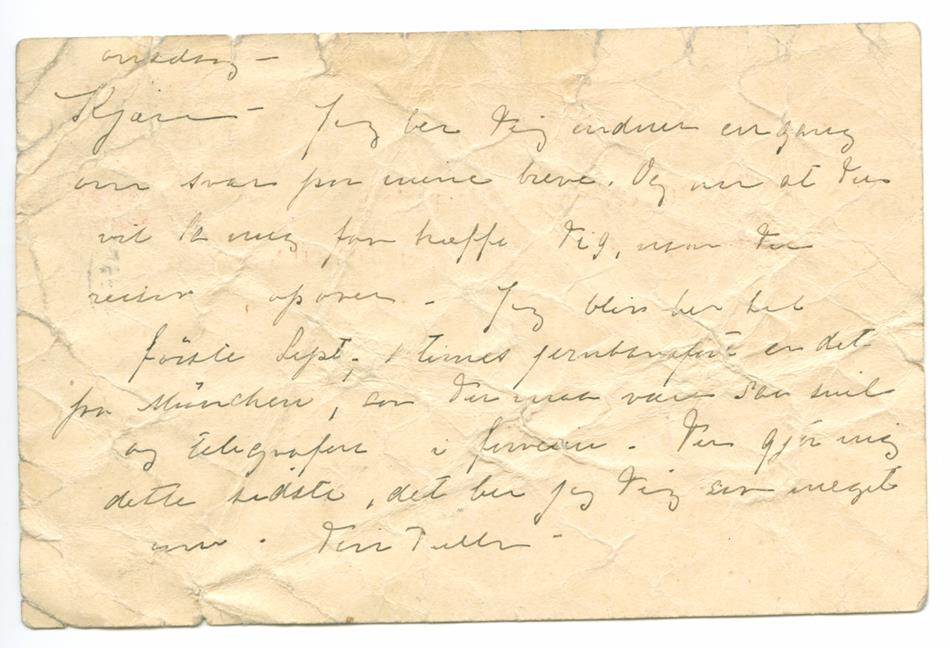 onsdag –
Kjære – Jeg ber Dig endnu en gang
om svar paa mine breve. Og om at Du
vil la mig faa træffe Dig, naar Du
reiser opover – Jeg blir her til
første Sept, 1 times jernbanefart er det
fra München, saa Du maa være saa snil
og telegrafere i forveien. Du gjør mig
dette sidste, det ber jeg Dig saa meget
om. Din Tulla –